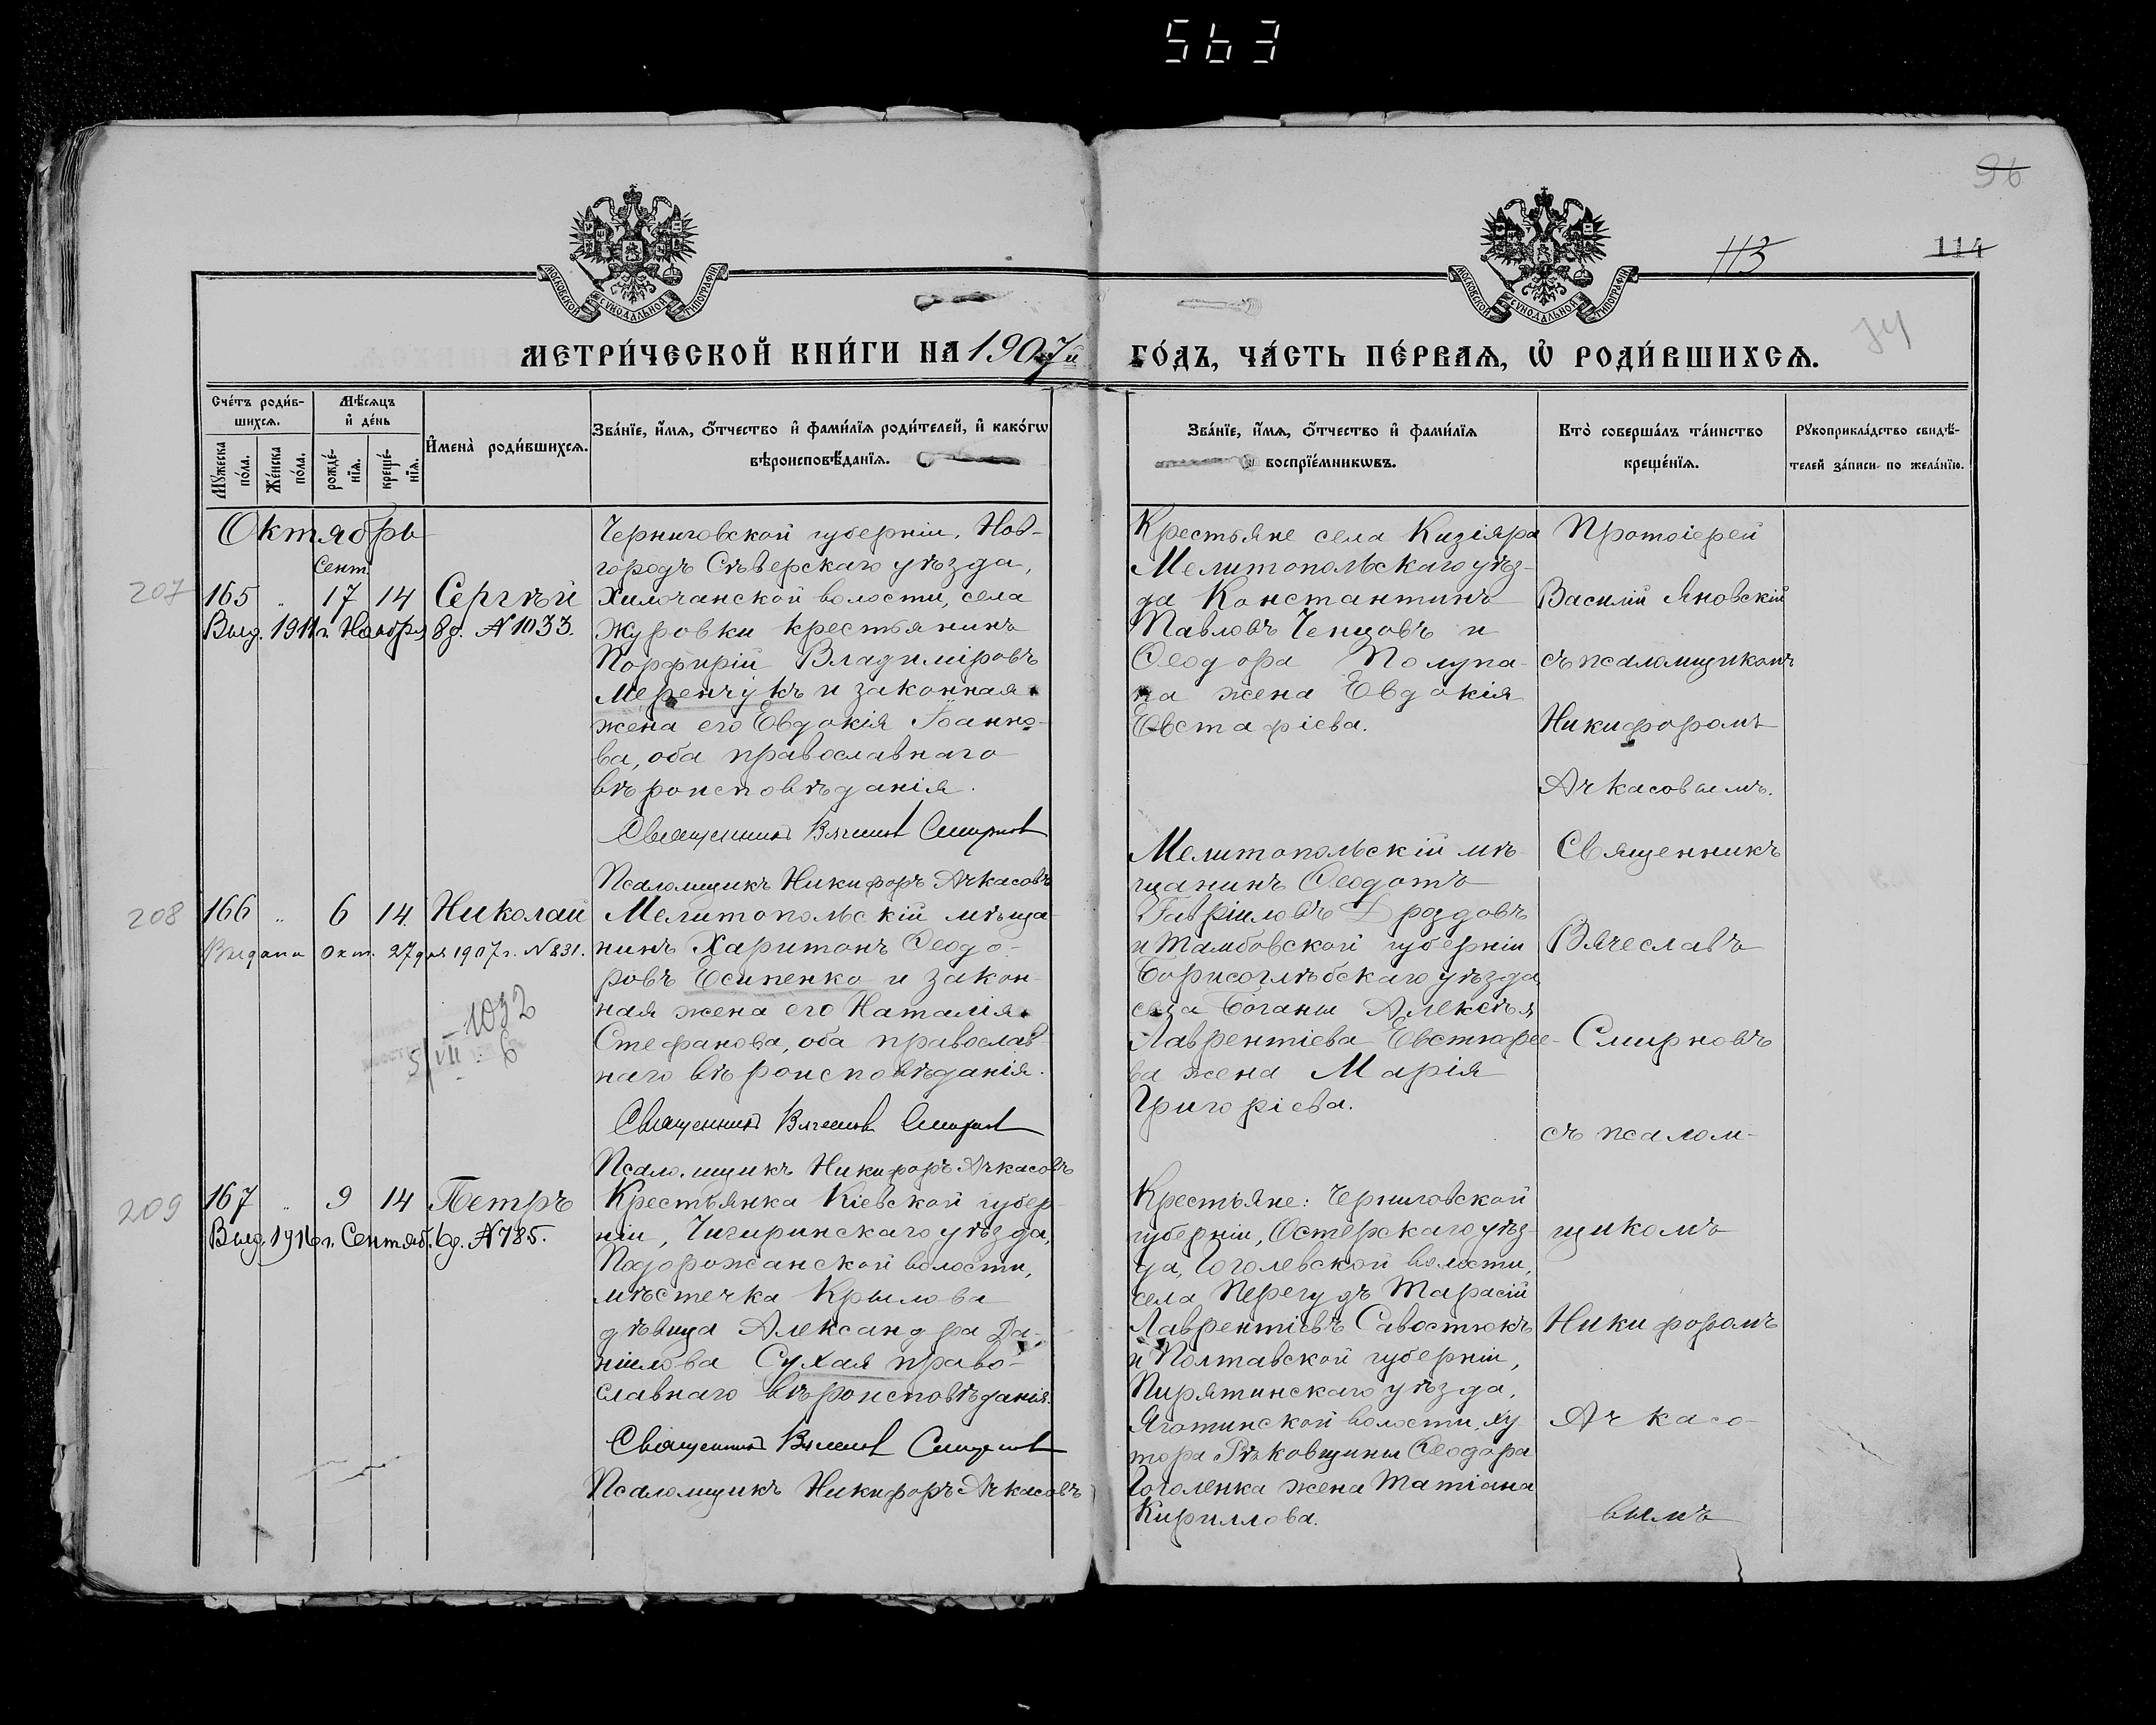 563
96
113
114
МОСКОВСКОЙ СѴНОДАЛЬНОЙ ТИПОГРАФІИ
МОСКОВСКОЙ СѴНОДАЛЬНОЙ ТИПОГРАФІИ
МЕТРИ́ЧЕСКОЙ КНИ́ГИ НА 1907й ГО́ДЪ, ЧА́СТЬ ПЕ́РВАѦ, Ѡ҆ РОДИ́ВШИХСѦ.
Сче́тъ роди́в-
шихсѧ.
Мѣ́сяцъ
и҆ де́нь
Мꙋ́жеска
по́ла.
Же́нска
по́ла.
рожде́-
нїѧ.
креще́-
нїѧ.
И҆мена̀ роди́вшихсѧ.
Зва́нїе, и҆́мѧ, ѻ҆́тчество и҆ фами́лїѧ роди́телей, и҆ како́гѡ
вѣроисповѣ́данїѧ.
Зва́нїе, и҆́мѧ, ѻ҆́тчество и҆ фами́лїѧ
воспрїе́мникѡвъ.
Кто̀ соверша́лъ та́инство
креще́нїѧ.
Рꙋкоприкла́дство свидѣ́-
телей за́писи по жела́нїю.
Октябрь
Сент.
207 165 " 17 14 Сергѣй
Выд. 1911 г. Ноября 8 д. № 1033.
Черниговской губерніи, Нов-
городъ Сѣверскаго уѣзда,
Хилочанской волости, села
Журовки крестьянинъ
Порфирій Владиміровъ
Меренчукъ и законная
жена его Евдокія Іоанно-
ва, оба православнаго
вѣроисповѣданія.
Священникъ Вячеслав Смирнов
Псаломщикъ Никифоръ Ачкасовъ
Крестьяне села Кизіяра
Мелитопольскаго уѣз-
да Константинъ
Павловъ Ченцовъ и
Ѳеодора Полупа-
на жена Евдокія
Евстафіева.
Протоіерей
Василій Яновскій
съ псаломщикомъ
Никифоромъ
Ачкасовымъ.
208 166 " 6 14. Николай
Выдана Окт. 27 дня 1907 г. № 831.
1032
5/VII 6
Мелитопольскій мѣща-
нинъ Харитонъ Ѳеодо-
ровъ Есипенко и закон-
ная жена его Наталія
Стефанова, оба православ-
наго вѣроисповѣданія.
Священникъ Вячеслав Смирнов
Псаломщикъ Никифоръ Ачкасовъ
Мелитопольскій мѣ-
щанинъ Ѳеодотъ
Гавріиловъ Дроздовъ
и Тамбовской губерніи
Борисоглѣбскаго уѣзда
села Боганы Алексѣя
Лаврентіева
ва жена Марія
Григоріева.
Священникъ
Вячеславъ
Смирновъ
съ псалом-
щикомъ
Никифоромъ
Ачкасо-
вымъ
209 167 " 9 14 Петръ
Выд. 1916 г. Сентяб. 6 д. № 785.
Крестьянка Кіевской губер-
ніи, Чигиринскаго уѣзда,
Подорожанской волости,
мѣстечка Крылова
дѣвица Александра Да-
ніилова Сухая право-
славнаго вѣроисповѣданія.
Священникъ Вячеслав Смирнов
Псаломщикъ Никифоръ Ачкасовъ
Крестьяне: Черниговской
губерніи, Остерскаго уѣз-
да, Гоголевской волости,
села Перегудъ Тарасій
Лаврентіевъ Савостюкъ
и Полтавской губерніи,
Пирятинскаго уѣзда,
Яготинской волости, ху-
тора Рѣковщины Ѳеодора
Гоголенка жена Татіана
Кириллова.